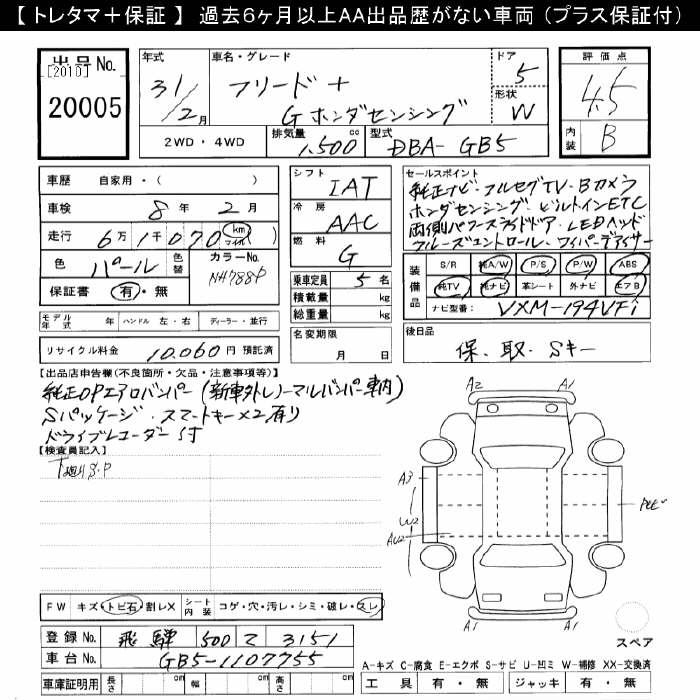 【 トレタマ＋保証 】 過去6ヶ月以上AA出品歴がない車両（プラス保証付）
出品No.
[2010]
20005
年式 31/2月
車名・グレード フリード＋ G ホンダセンシング
ドア 5
形状 W
2WD・4WD
排気量 1,500 cc
型式 DBA- GB5
評価点 4.5
内装 B
車歴 自家用・( )
車検 8年 2月
走行 6万1千070 (km マイル)
色 パール 色替 カラーNo. NH788P
保証書 有・無
モデル年式 年 ハンドル 左・右 ディーラー・並行
リサイクル料金 10,060円 預託済
シフト IAT
冷房 AAC
燃料 G
乗車定員 5名
積載量 kg
総重量 kg
名変期限 月 日
セールスポイント
純正ナビ・フルセグTV・Bカメラ
ホンダセンシング・ビルトインETC
両側パワースライドドア・LEDヘッド
クルーズコントロール・ワイパーデアイサー
装備品 S/R 純A/W P/S P/W ABS
純TV 純ナビ 革シート 外ナビ エアB
ナビ型番 VXM-194VFi
後日品
保、取、Sキー
【出品店申告欄(不良箇所・欠品・注意事項等)】
純正OPエアロバンパー(新車外し)ノーマルバンパー車内)
Sパッケージ、スマートキー×2有り
ドライブレコーダー付
【検査員記入】
A2 A1
A3
W2
AU2
A1 A1
FW キズ・トビ石・割レX シート内装 コゲ・穴・汚レ・シミ・破レ・スレ
登録No. 飛騨 500 て 3151
車台No. GB5-1107755
車庫証明用 長さ cm 幅 cm 高さ cm
スペア
A-キズ C-腐食 E-エクボ S-サビ U-凹ミ W-補修 XX-交換済
工具 有・無 ジャッキ 有・無